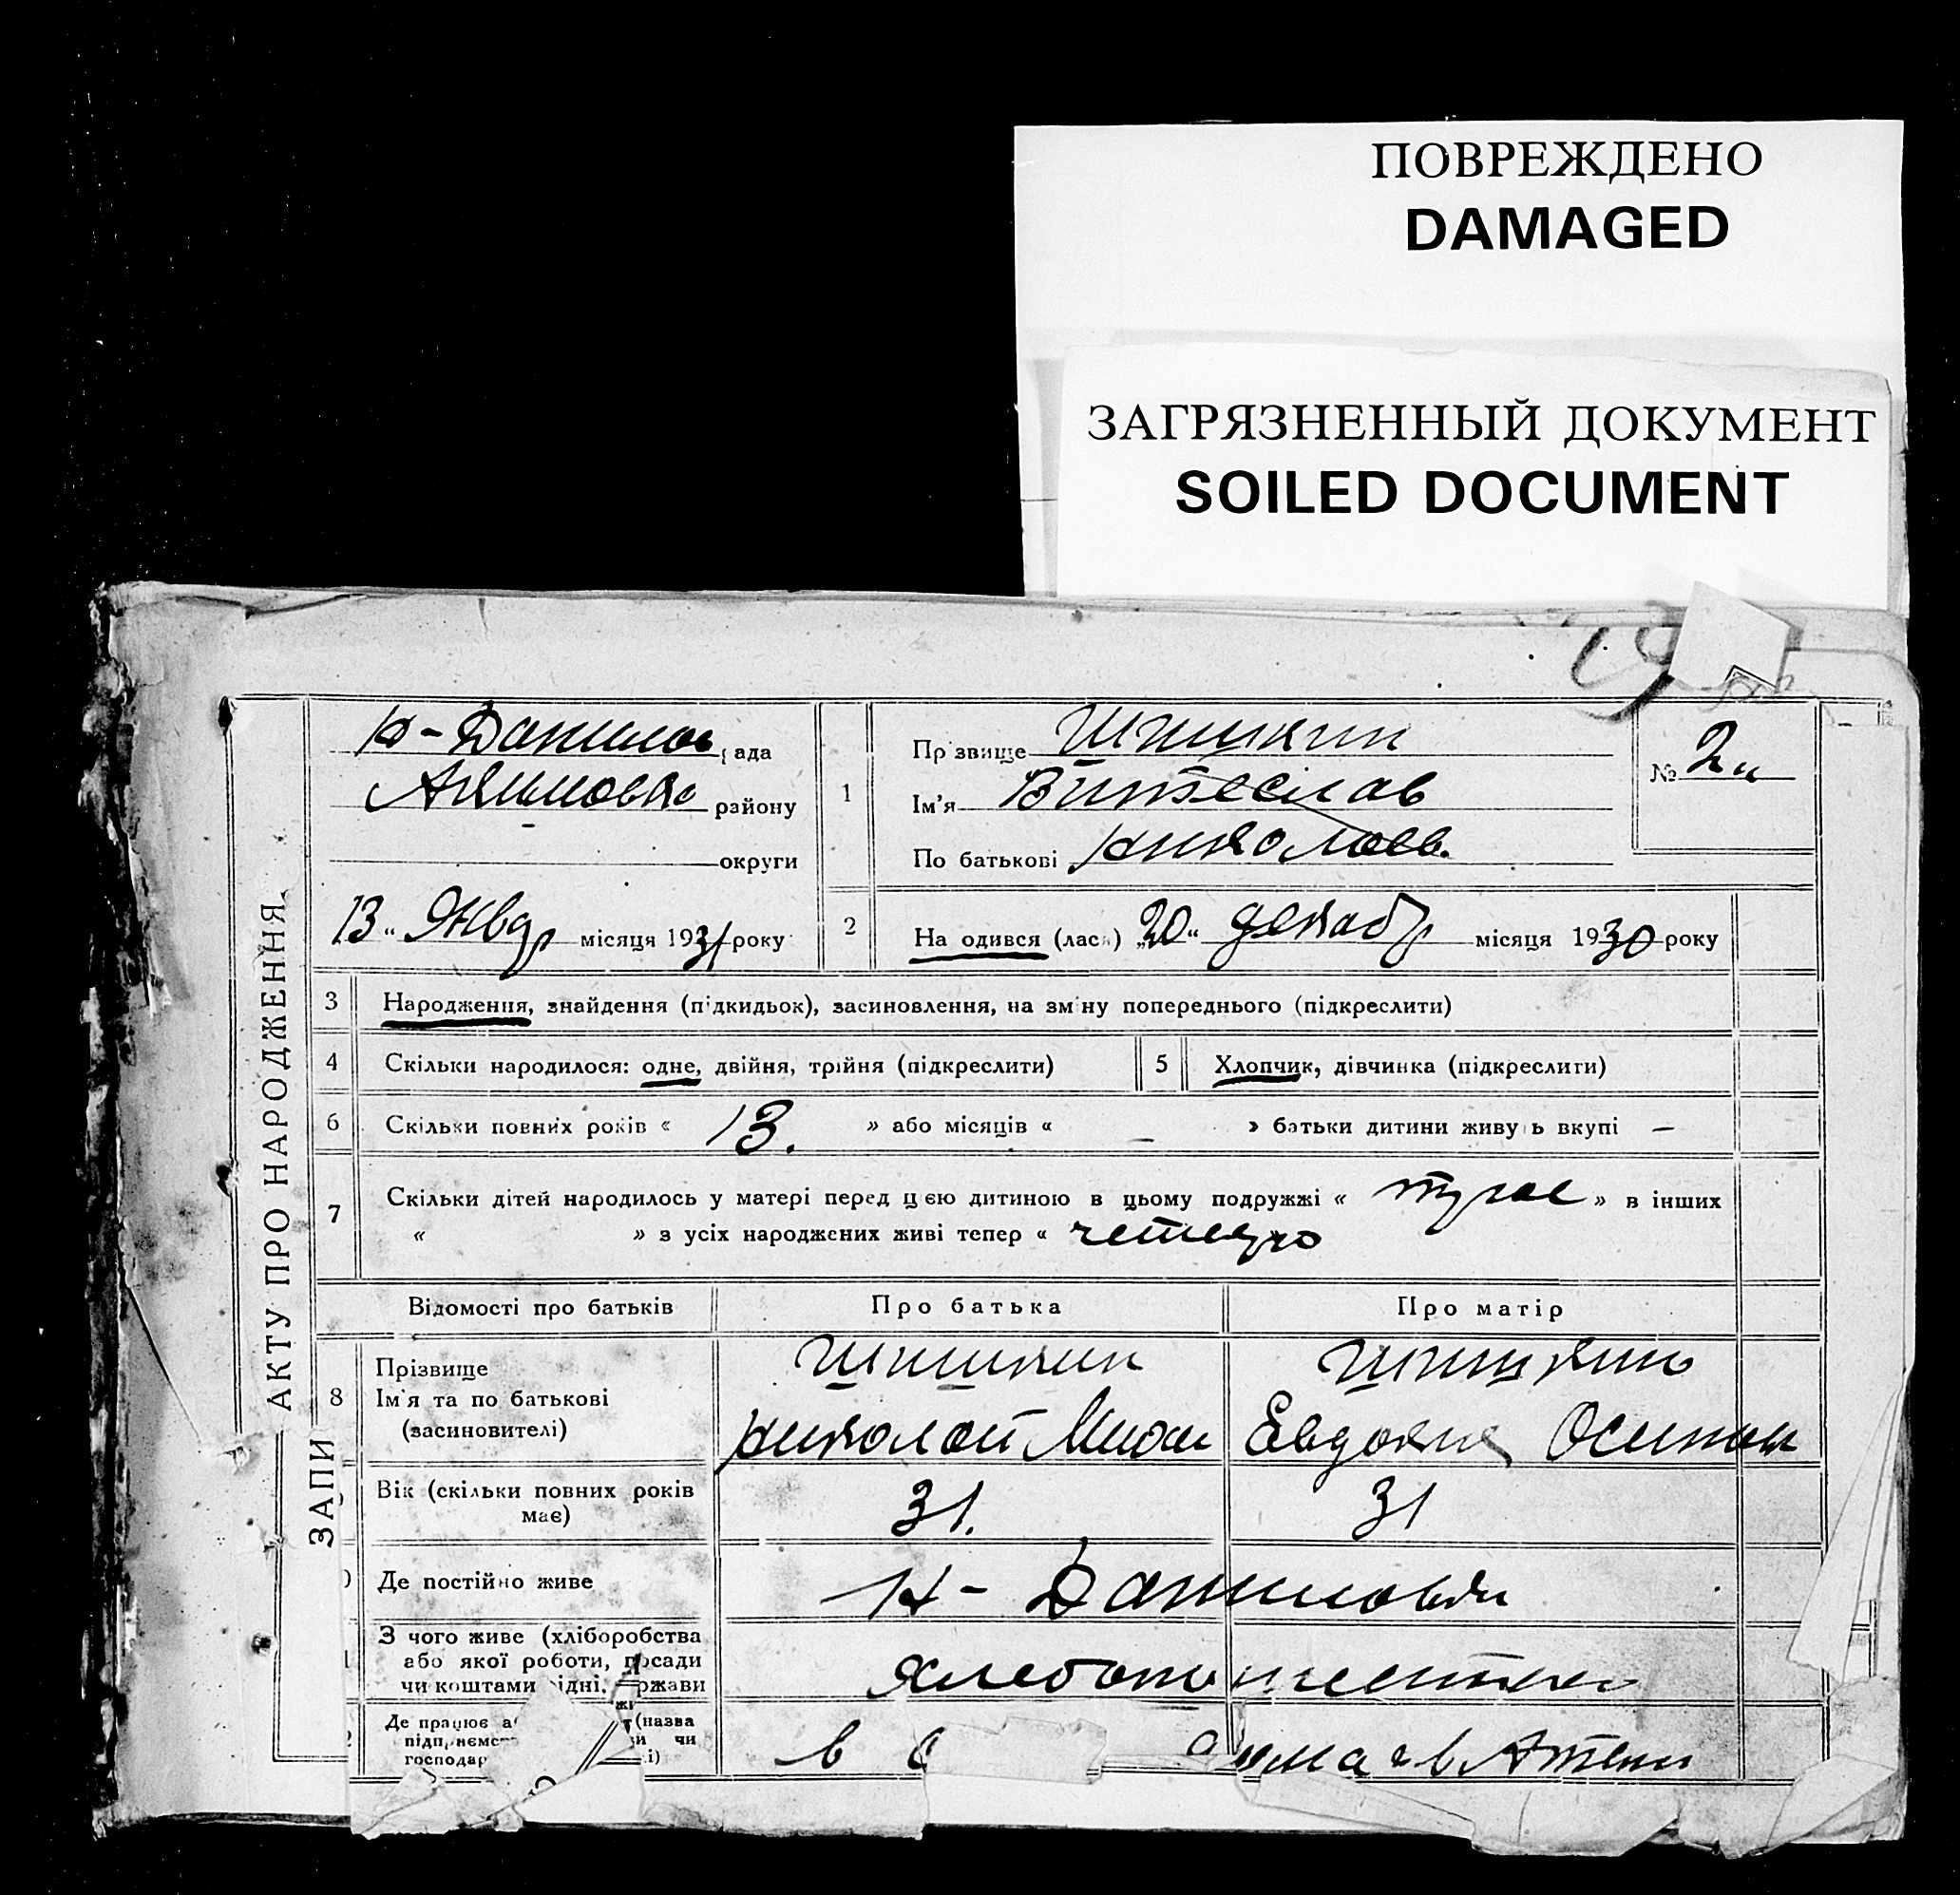 ПОВРЕЖДЕНО
DAMAGED
ЗАГРЯЗНЕННЫЙ ДОКУМЕНТ
SOILED DOCUMENT
ЗАПИ АКТУ ПРО НАРОДЖЕННЯ
Н-Данилов рада
Акимовка району
округи
13 " Январ місяця 1931 року
1 Прізвище Шишкин
Ім'я
По батькові Николаев.
№ 2
2 На одився (лася) „20" декабр місяця 1930 року
3 Народження, знайдення (підкидьок), засиновлення, на зміну попереднього (підкреслити)
4 Скільки народилося: одне, двійня, трійня (підкреслити) 5 Хлопчик, дівчинка (підкреслити)
6 Скільки повних років « 13. » або місяців « – » батьки дитини живуть вкупі –
7 Скільки дітей народилось у матері перед цією дитиною в цьому подружжі « » в інших
« » з усіх народжених живі тепер «
Відомості про батьків Про батька Про матір
8 Прізвище Шишкин Шишкин
Ім'я та по батькові
(засиновителі) Николай Миха Евдокия Осипов
Вік (скільки повних років має) 31. 31
Де постійно живе Н- Даниловк
З чого живе (хліборобства
або якої роботи, посади
чи коштами рідні, держави
Де працює (назва
підприємс чи
господар і) в